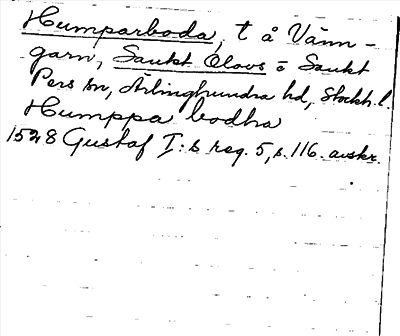 Humparboda, t å Vänn-
garn, Sankt Olovs o Sankt
Pers sn, Ärlinghundra hd, Stockh. l.
Humppa bodha
1528 Gustaf I:s reg. 5, s. 116. avskr.